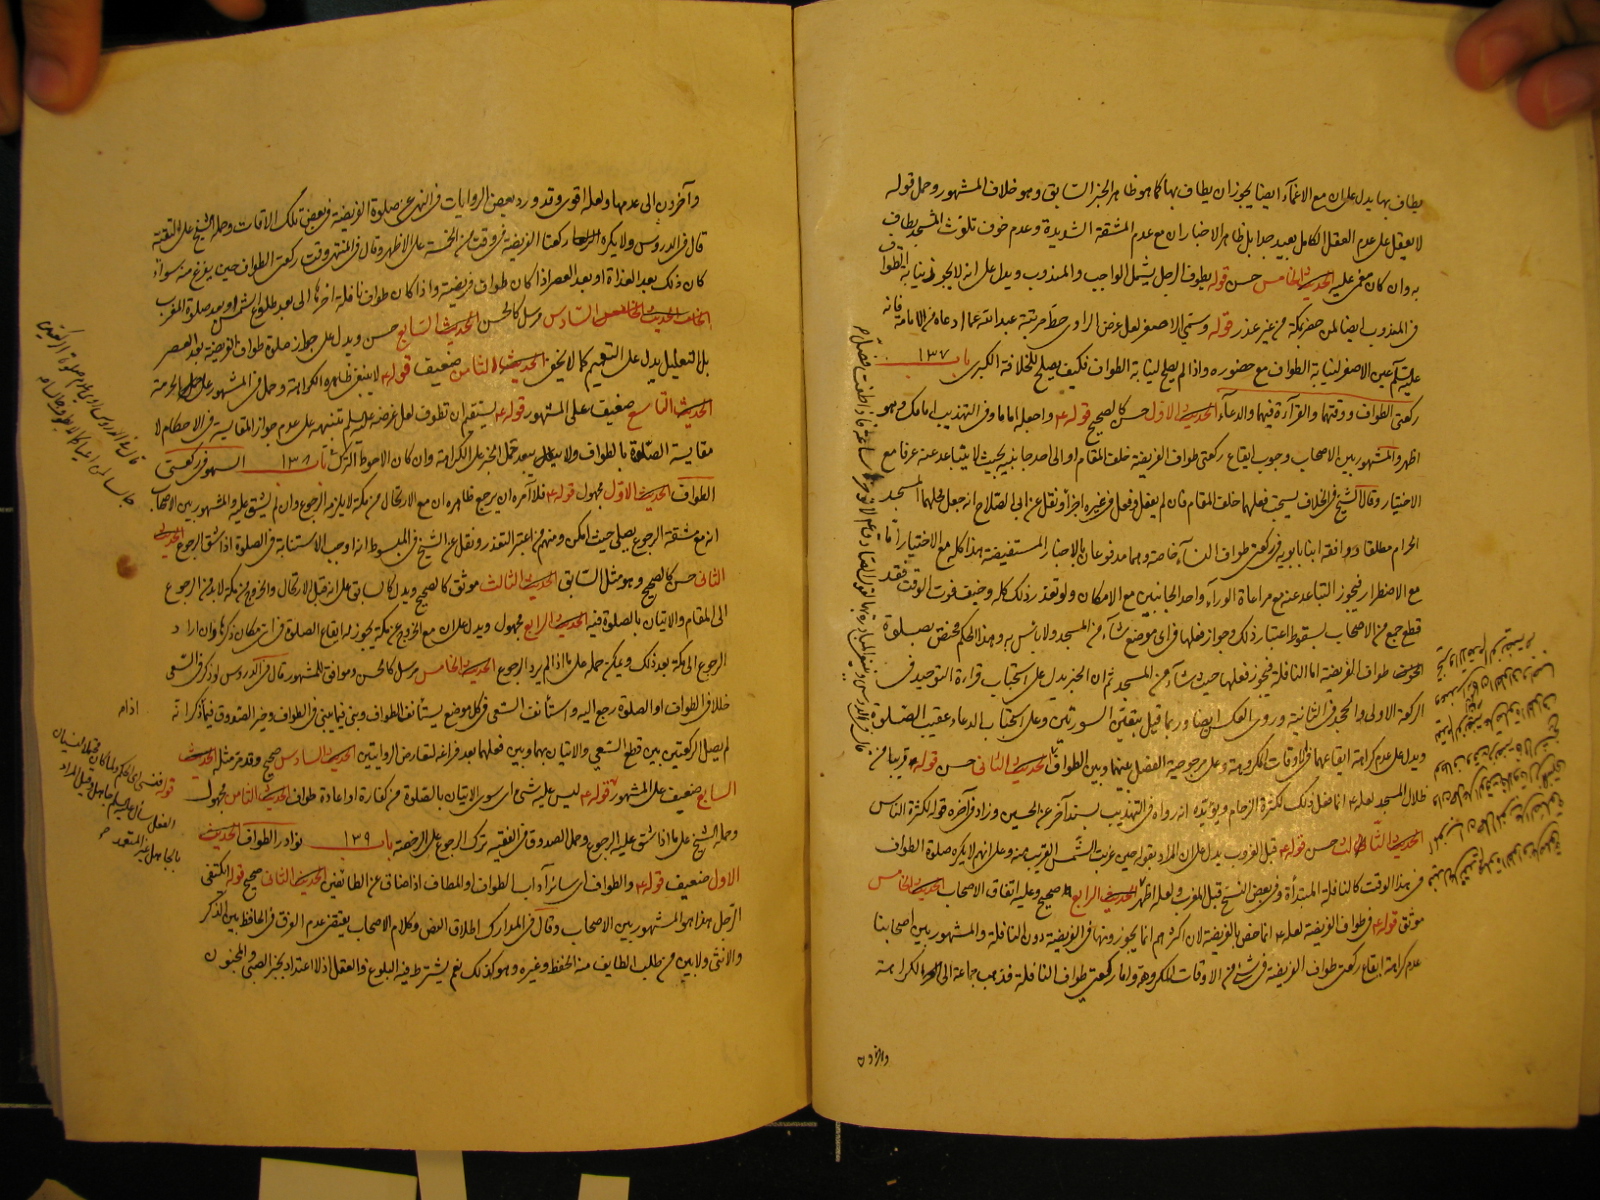 يطاف بها يدل على ان مع الاغماء ايضا يجوز ان يطاف بها كما هو ظاهر الخبر السابق وهو خلاف المشهور وحمل قوله
لا يعقل على عدم العقل الكامل بعيد جدا بل ظاهر الاخبار ان مع عدم المشقة الشديدة وعدم خوف تلوث المسجد يطاف
به وان كان مغمى عليه الحديث الخامس حسن قوله يطوف الرجل يشمل الواجب والمندوب ويدل على انه لا يجوز نيابة الطواف
في المندوب ايضا لمن حضر بمكة من غير عذر قوله وسمي الاصغر لعل غرض الراوي حط مرتبة عبدالله عما ادعاه من الامامة فانه
عليه السلام عين الاصغر لنيابة الطواف مع حضوره واذا لم يصلح لنيابة الطواف فكيف يصلح للخلافة الكبرى باب ١٣٧
ركعتي الطواف ووقتهما والقراءة فيهما والدعاء الحديث الاول حسن كالصحيح قوله ع واجعله اماما وفي التهذيب امامك وهو
اظهر والمشهور بين الاصحاب وجوب ايقاع ركعتي طواف الفريضة خلف المقام او الى احد جانبيه بحيث لا يتباعد عنه عرفا مع
الاختيار وقال الشيخ في الخلاف يستحب فعلهما خلف المقام فان لم يفعل وفعل في غيره اجزأه ونقل عن ابي الصلاح انه جعل محلهما المسجد
الحرام مطلقا ووافقه ابنا بابويه في ركعتي طواف النساء خاصة وهما مدفوعان بالاخبار المستفيضة هذا كله مع الاختيار اما
مع الاضطرار فيجوز التباعد عنه مع مراعاة الوراء واحد الجانبين مع الامكان ولو تعذر ذلك كله وخيف فوت الوقت فقد
قطع جمع من الاصحاب بسقوط اعتبار ذلك وجواز فعلها في اي موضع شاء من المسجد ولا بأس به وهذا الحكم مختص بصلوة
طواف الفريضة اما النافلة فيجوز فعلها حيث شاء من المسجد ثم ان الخبر يدل على استحباب قراءة التوحيد في
الركعة الاولى والجحد في الثانية وروي العكس ايضا وربما قيل بتعين السورتين وعلى استحباب الدعاء عقيب الصلوة
ويدل على عدم كراهة ايقاعهما في الاوقات المكروهة وعلى مرجوحية الفصل بينهما وبين الطواف الحديث الثاني حسن قوله ع قريبا من
ظلال المسجد لعله ع انما فعل ذلك لكثرة الزحام ويؤيده انه رواه في التهذيب بسند آخر عن الحسين وزاد في آخره قوله لكثرة الناس
الحديث الثالث حسن قوله ع قبل الغروب يدل على ان المراد بقوله حين غربت الشمس القريب منه وعلى انهم لا يكره صلوة الطواف
في هذا الوقت كالنافلة المبتدأة وفي بعض النسخ قبل المغرب ولعله اظهر الحديث الرابع صحيح وعليه اتفاق الاصحاب الحديث الخامس
موثق قوله ع في طواف الفريضة لعله ع انما خص بالفريضة لان اكثرهم انما يجوزونها في الفريضة دون النافلة والمشهور بين اصحابنا
عدم كراهة ايقاع ركعتي طواف الفريضة في شئ من الاوقات المكروهة واما ركعتي طواف النافلة فذهب جماعة الى الكراهة
وآخرون
وآخرون الى عدمها ولعله اقوى وقد ورد بعض الروايات في النهي عن صلوة الفريضة في بعض تلك الاوقات وحمله الشيخ على التقية
قال في الدروس ولا يكره ركعتا الفريضة في وقت من الخمسة على الاظهر وقال في المنتهى وقت ركعتي الطواف حين يفرغ منه سواء
كان ذلك بعد الغداة او بعد العصر اذا كان طواف فريضة واذا كان طواف نافلة اخرهما الى بعد طلوع الشمس او بعد صلوة المغرب
الحديث السادس مرسل كالحسن الحديث السابع حسن ويدل على جواز صلوة طواف الفريضة بعد العصر
بل التعليل يدل على التعميم كما لا يخفى الحديث الثامن ضعيف قوله ع لا ينبغي ظاهره الكراهة وحمل في المشهور على الحرمة
الحديث التاسع ضعيف على المشهور قوله ع يستقيم ان تطوف لعل غرضه عليه السلام تنبيهه على عدم جواز المقايسة في الاحكام لا
مقايسة الصلوة بالطواف ولا يبعد حمل الخبر على الكراهة وان كان الاحوط الترك باب ١٣٨ السهو في ركعتي
الطواف الحديث الاول مجهول قوله ع فلا آمره ان يرجع ظاهره ان مع الارتحال من مكة لا يلزمه الرجوع وان لم يشق عليه والمشهور بين الاصحاب
انه مع مشقة الرجوع يصلي حيث امكن ومنهم من اعتبر التعذر ونقل عن الشيخ في المبسوط انه اوجب الاستنابة في الصلوة اذا شق الرجوع الحديث
الثاني حسن كالصحيح وهو مثل السابق الحديث الثالث موثق كالصحيح ويدل كالسابق على انه قبل الارتحال والخروج من مكة لا بد من الرجوع
الى المقام والاتيان بالصلوة فيه الحديث الرابع مجهول ويدل على ان مع الخروج عن مكة يجوز له ايقاع الصلوة في اي مكان ذكرها وان اراد
الرجوع الى مكة بعد ذلك ويمكن حمله على ما اذا لم يرد الرجوع الحديث الخامس مرسل كالحسن وموافق للمشهور قال في الدروس لو ذكر في السعي
خللا في الطواف او الصلوة رجع اليه واستأنف السعي في كل موضع يستأنف الطواف وبنى فيما يبني في الطواف وخير الصدوق فيما ذكر انه
لم يصل الركعتين بين قطع السعي والاتيان بهما وبين فعلهما بعد فراغه لتعارض الروايتين الحديث السادس صحيح وقد مر مثله الحديث
السابع ضعيف على المشهور قوله ع ليس عليه شئ اي سوى الاتيان بالصلوة من كفارة او اعادة طواف الحديث الثامن مجهول
وحمله الشيخ على ما اذا شق عليه الرجوع وحمل الصدوق في الفقيه ترك الرجوع على الرخصة باب ١٣٩ نوادر الطواف الحديث
الاول ضعيف قوله ع والطواف اي سائر آداب الطواف او المطاف اذا ضاق عن الطائفين الحديث الثاني صحيح قوله ايكتفي
الرجل هذا هو المشهور بين الاصحاب وقال في المدارك اطلاق النص وكلام الاصحاب يقتضي عدم الفرق في الحافظ بين الذكر
والانثى ولا بين من طلب الطائف منه الحفظ وغيره وهو كذلك نعم يشترط فيه البلوغ والعقل اذ لا اعتداد بخبر الصبي والمجنون